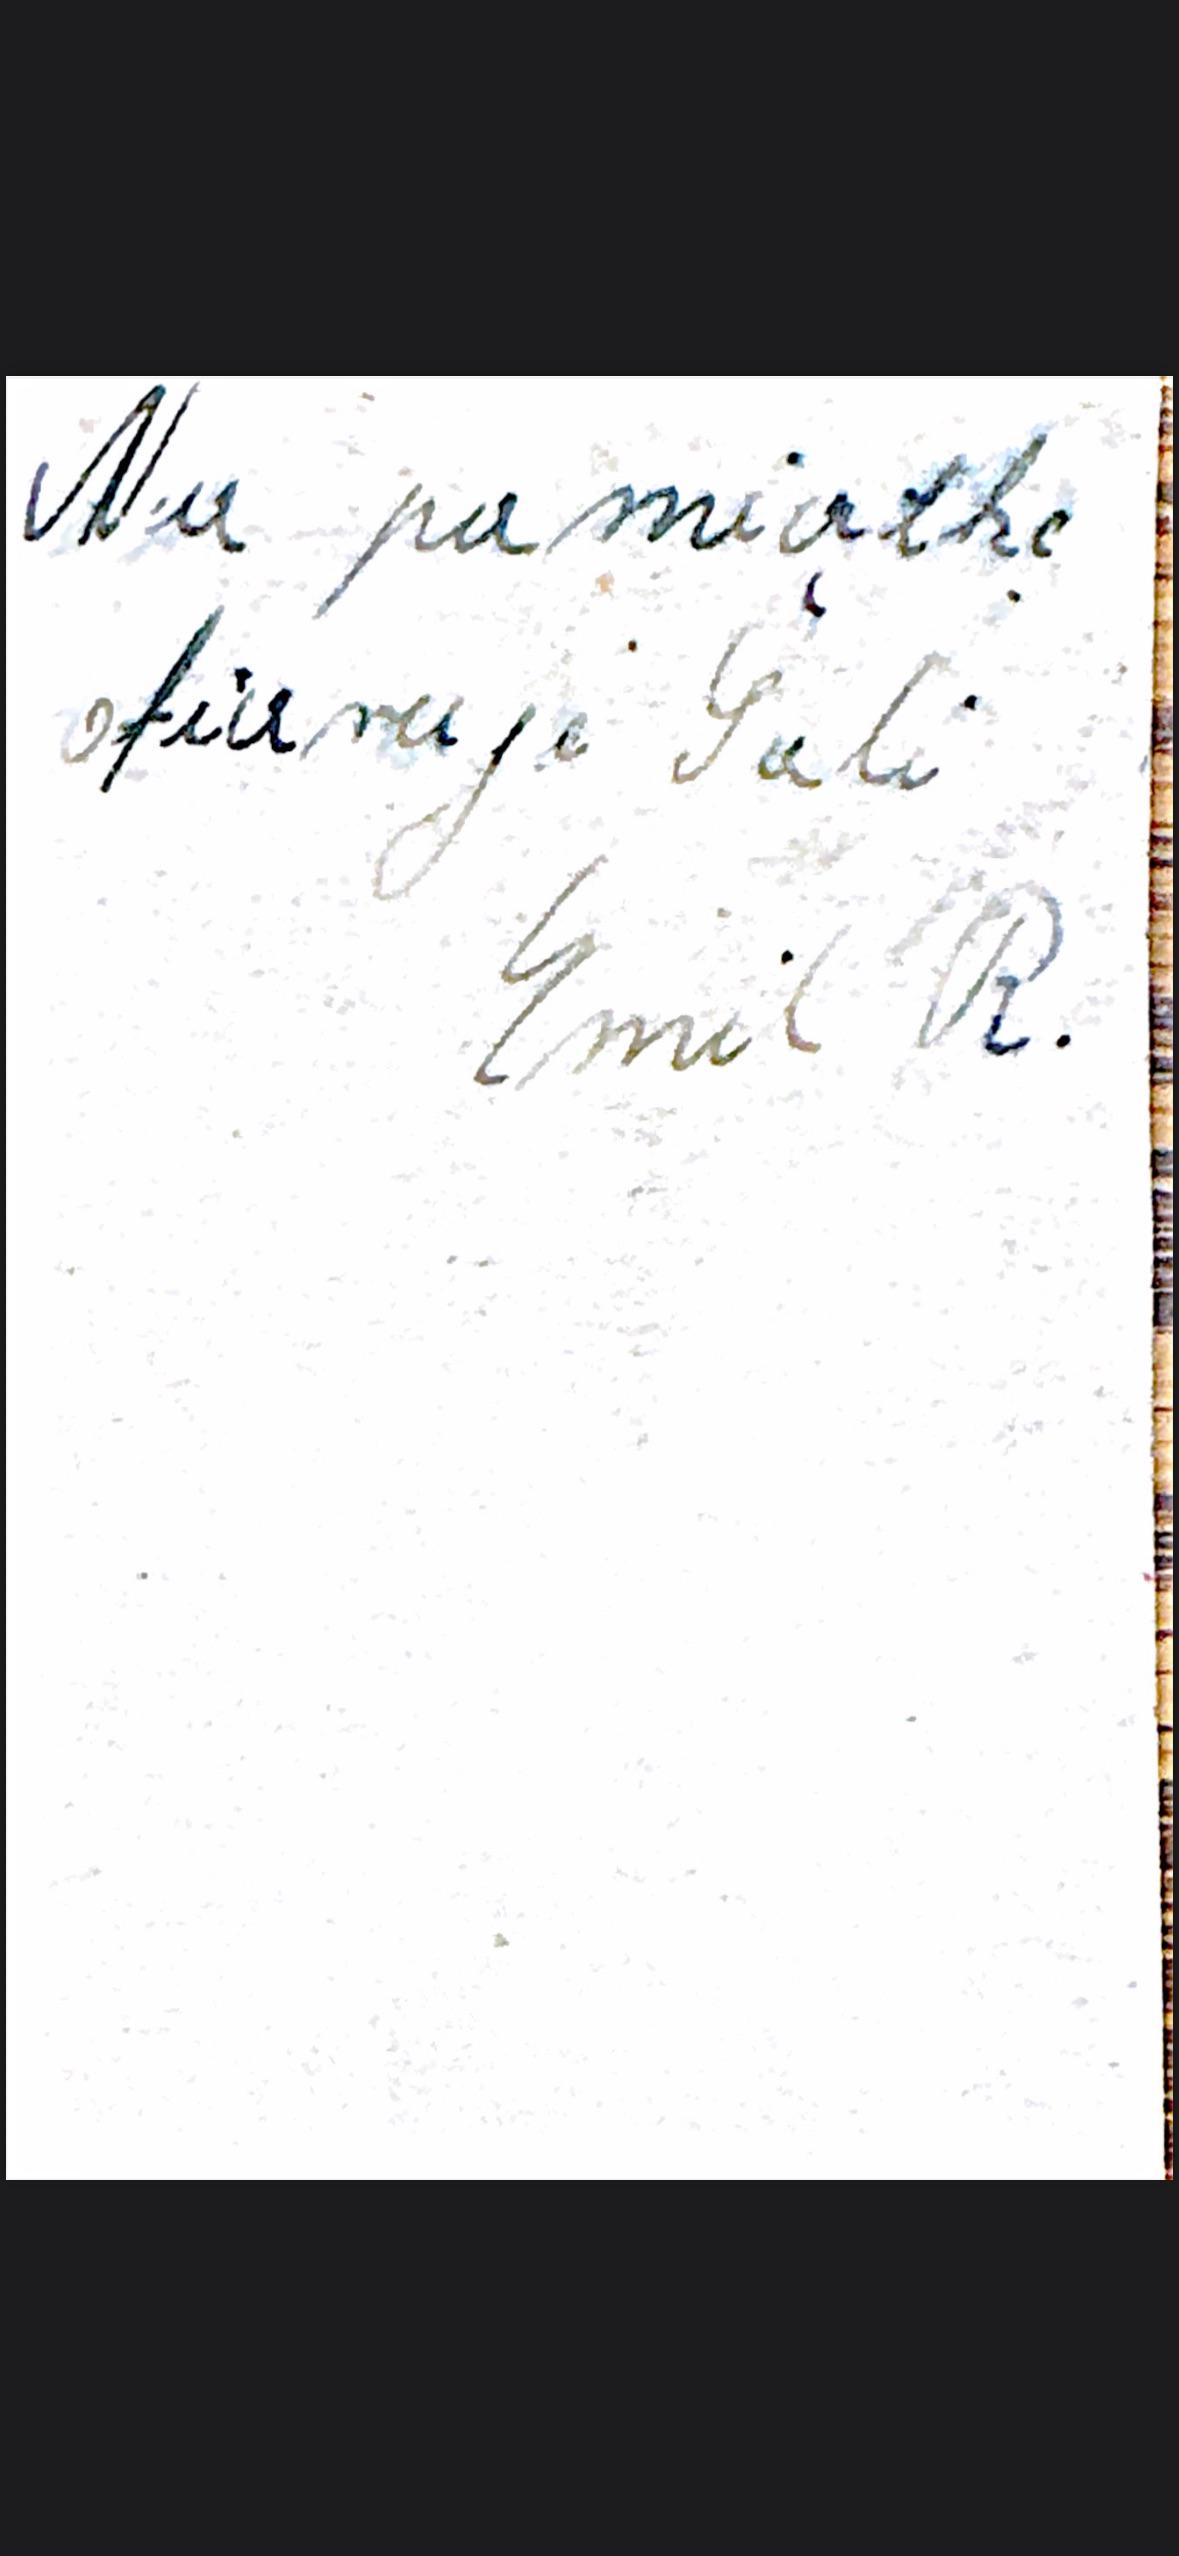 Na pamiątkę
ofiaruję Gali
Emil R.